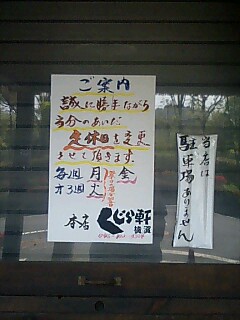 ご案内
誠に勝手ながら
当分のあいだ
定休日を変更
させて頂きます
毎週 月 金
オ3週 火
本店 くじら軒
横濱
当店は
駐車場ありません